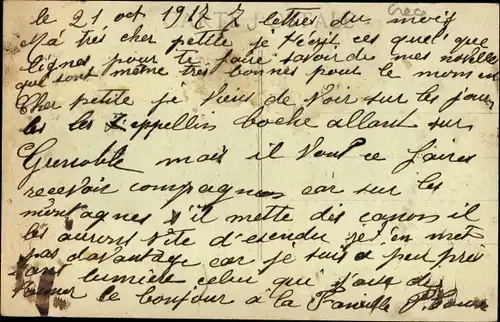 le 21 oct 1917 7 lettres du mois
Ma très cher petite je t'écrit ces quel'que
lignes pour te faire savoir de mes novelles
qui sont même très bonnes pour le momen
Cher petite je viens de voir sur les jour
les les Zeppellin boche allant sur
Grenoble mais il vont ce faires
recevoir compagnes car sur les
montagnes s'il mette des canons il
les auront vite d'esendu je n'en met
pas d'avantage car je suis a peu près
sans lumière celui qui t'aime
le bonjour à la famille